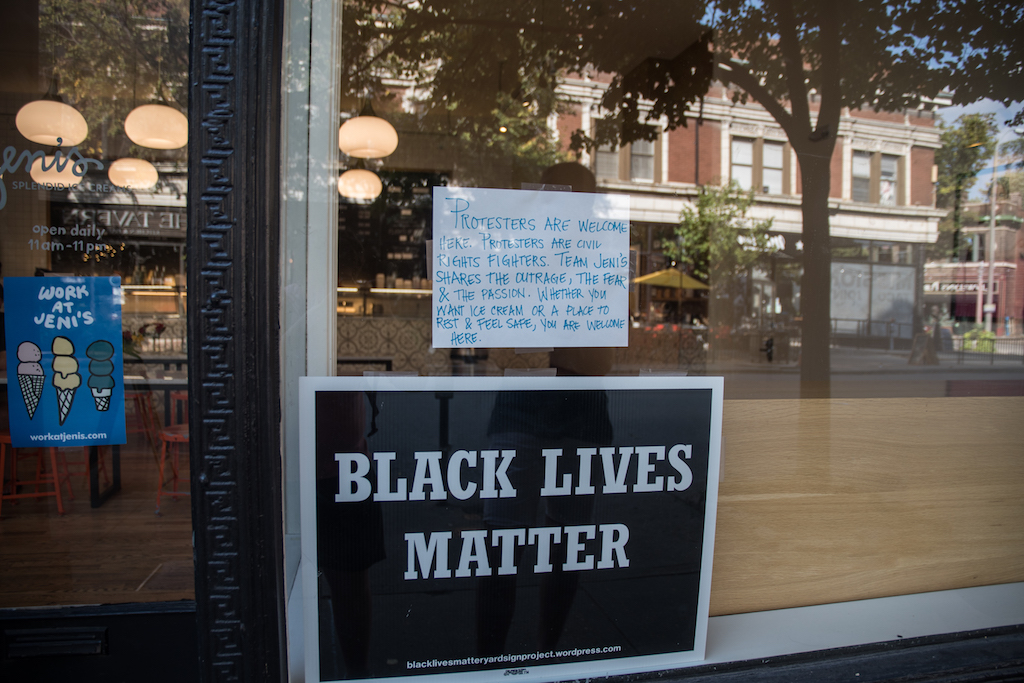 Jeni's
SPLENDID ICE CREAMS
open daily
11am-11pm
WORK
AT
JENI'S
workatjenis.com
THE TAVERN
PROTESTERS ARE WELCOME
HERE. PROTESTERS ARE CIVIL
RIGHTS FIGHTERS. TEAM JENI'S
SHARES THE OUTRAGE, THE FEAR
& THE PASSION. WHETHER YOU
WANT ICE CREAM OR A PLACE TO
REST & FEEL SAFE, YOU ARE WELCOME
HERE.
BLACK LIVES
MATTER
blacklivesmatteryardsignproject.wordpress.com